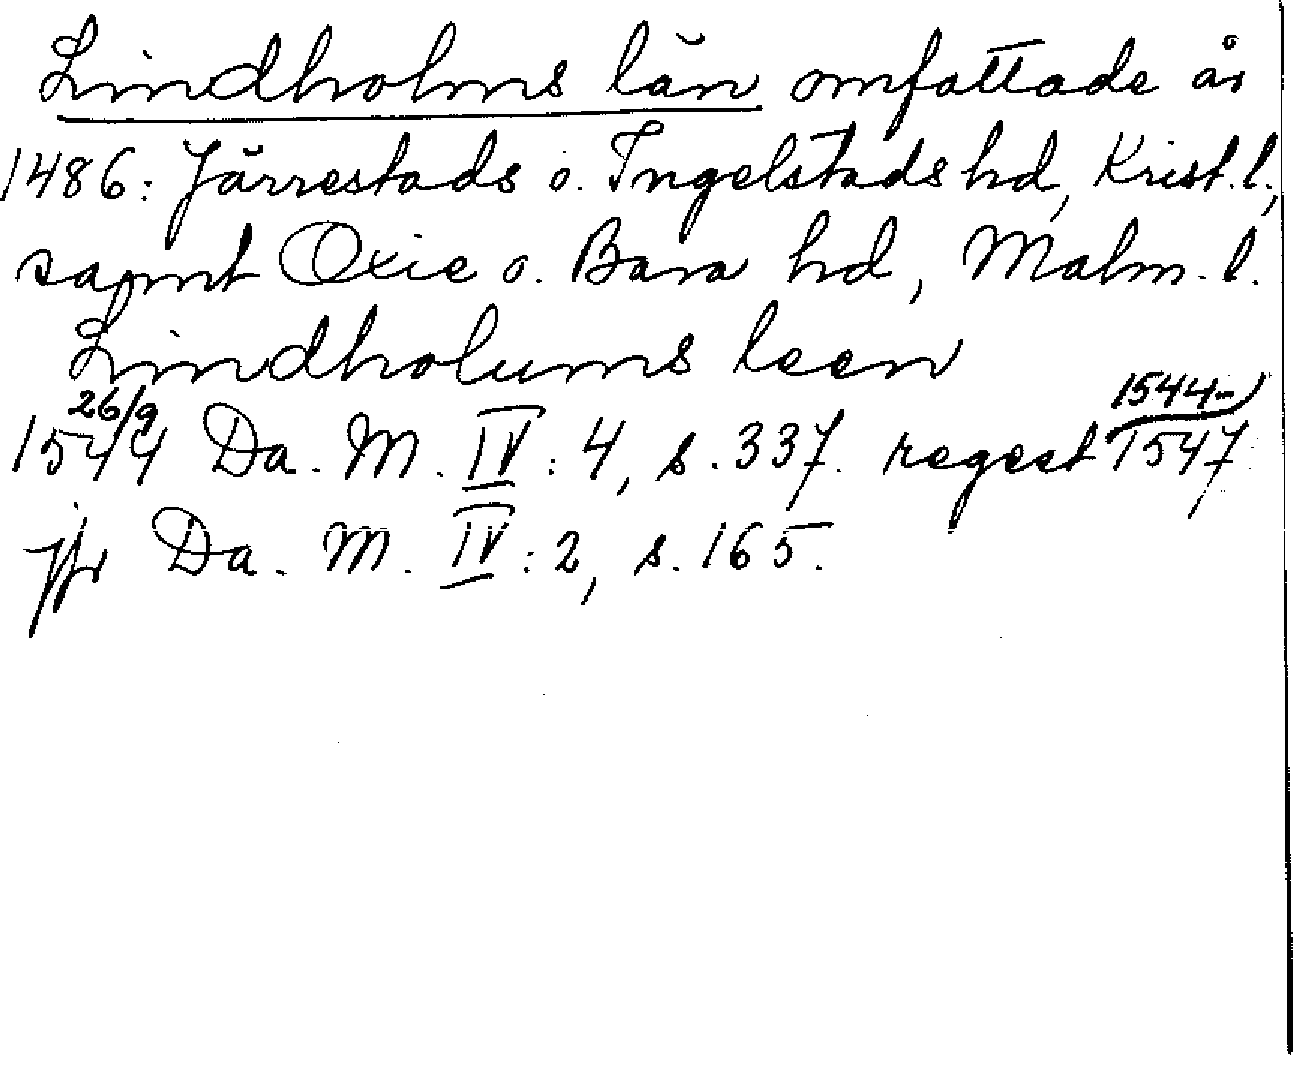 Lindholms län omfattade år
1486: Järrestads o. Ingelstads hd, Krist. l.,
samt Oxie o. Bara hd, Malm. l.
Lindholums leen
1544 26/9 Da. M. IV: 4, s. 337. regest 1544-1547
jfr Da. M. IV: 2, s. 165.